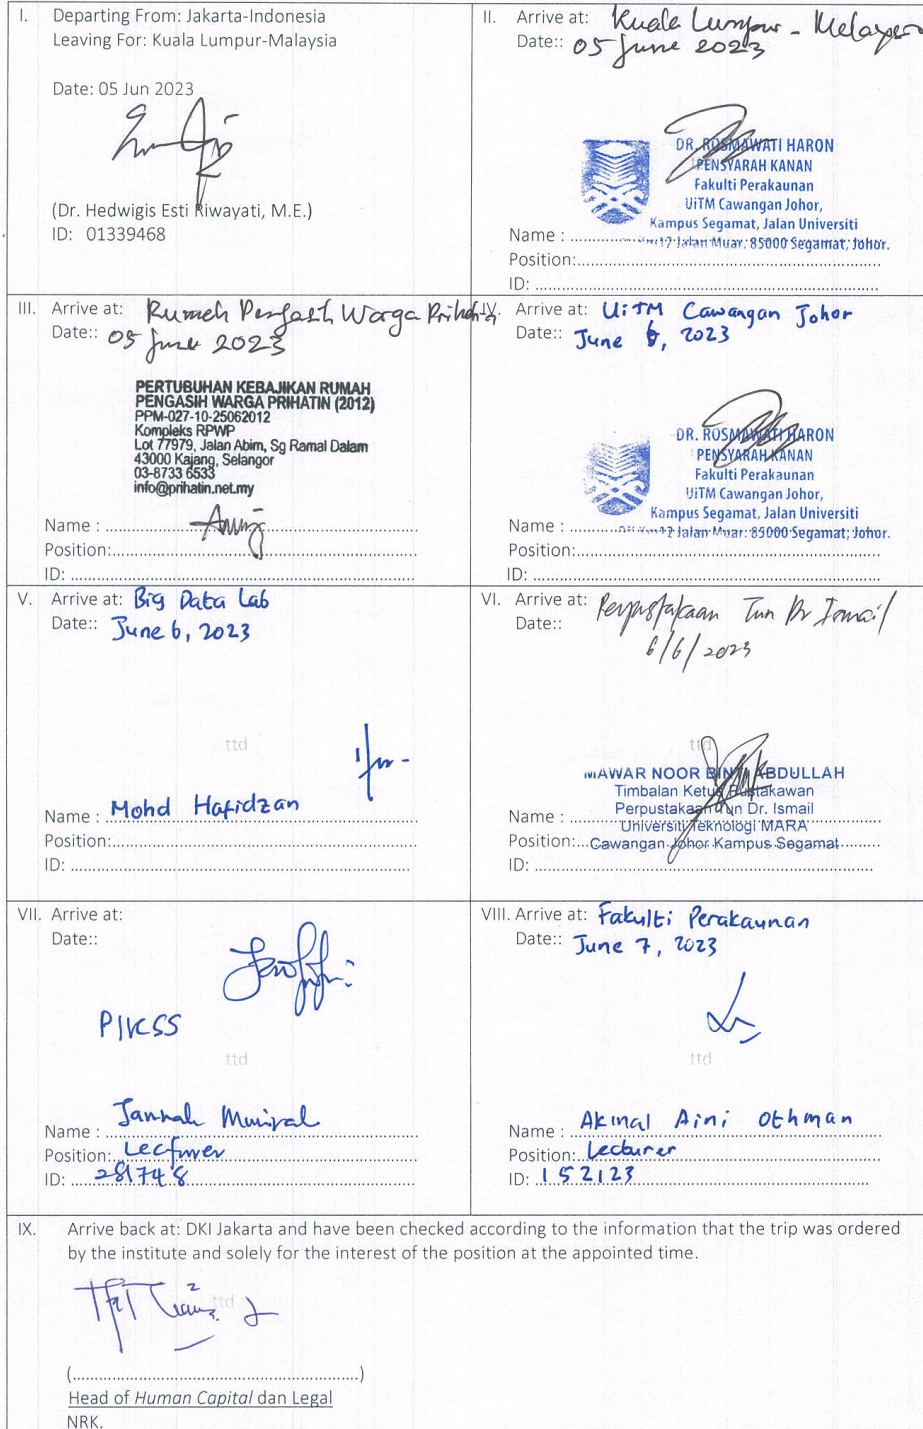 I. Departing From: Jakarta-Indonesia
Leaving For: Kuala Lumpur-Malaysia
Date: 05 Jun 2023
(Dr. Hedwigis Esti Riwayati, M.E.)
ID: 01339468
II. Arrive at: Kuala Lumpur - Melaysia
Date:: 05 June 2023
DR. ROSMAWATI HARON
PENSYARAH KANAN
Fakulti Perakaunan
UiTM Cawangan Johor,
Kampus Segamat, Jalan Universiti
Name : Km12 Jalan Muar, 85000 Segamat, Johor.
Position:
ID:
III. Arrive at: Rumah Pengasih Warga Prihatin
Date:: 05 June 2023
PERTUBUHAN KEBAJIKAN RUMAH
PENGASIH WARGA PRIHATIN (2012)
PPM-027-10-25062012
Kompleks RPWP
Lot 77979, Jalan Abim, Sg Ramal Dalam
43000 Kajang, Selangor
03-8733 6533
info@prihatin.net.my
Name :
Position:
ID:
IV. Arrive at: UiTM Cawangan Johor
Date:: June 6, 2023
DR. ROSMAWATI HARON
PENSYARAH KANAN
Fakulti Perakaunan
UiTM Cawangan Johor,
Kampus Segamat, Jalan Universiti
Name : Km12 Jalan Muar, 85000 Segamat, Johor.
Position:
ID:
V. Arrive at: Big Data Lab
Date:: June 6, 2023
ttd
Name : Mohd Hafidzan
Position:
ID:
VI. Arrive at: Perpustakaan Tun Dr Ismail
Date:: 6/6/2023
ttd
MAWAR NOOR BINTI ABDULLAH
Timbalan Ketua Pustakawan
Perpustakaan Tun Dr. Ismail
Name : Universiti Teknologi MARA
Position: Cawangan Johor Kampus Segamat
ID:
VII. Arrive at:
Date::
PIKSS
ttd
Name : Jannah Munirah
Position: Lecturer
ID: 281748
VIII. Arrive at: Fakulti Perakaunan
Date:: June 7, 2023
ttd
Name : Akmal Aini Othman
Position: Lecturer
ID: 152123
IX. Arrive back at: DKI Jakarta and have been checked according to the information that the trip was ordered
by the institute and solely for the interest of the position at the appointed time.
ttd
(..........)
Head of Human Capital dan Legal
NRK.